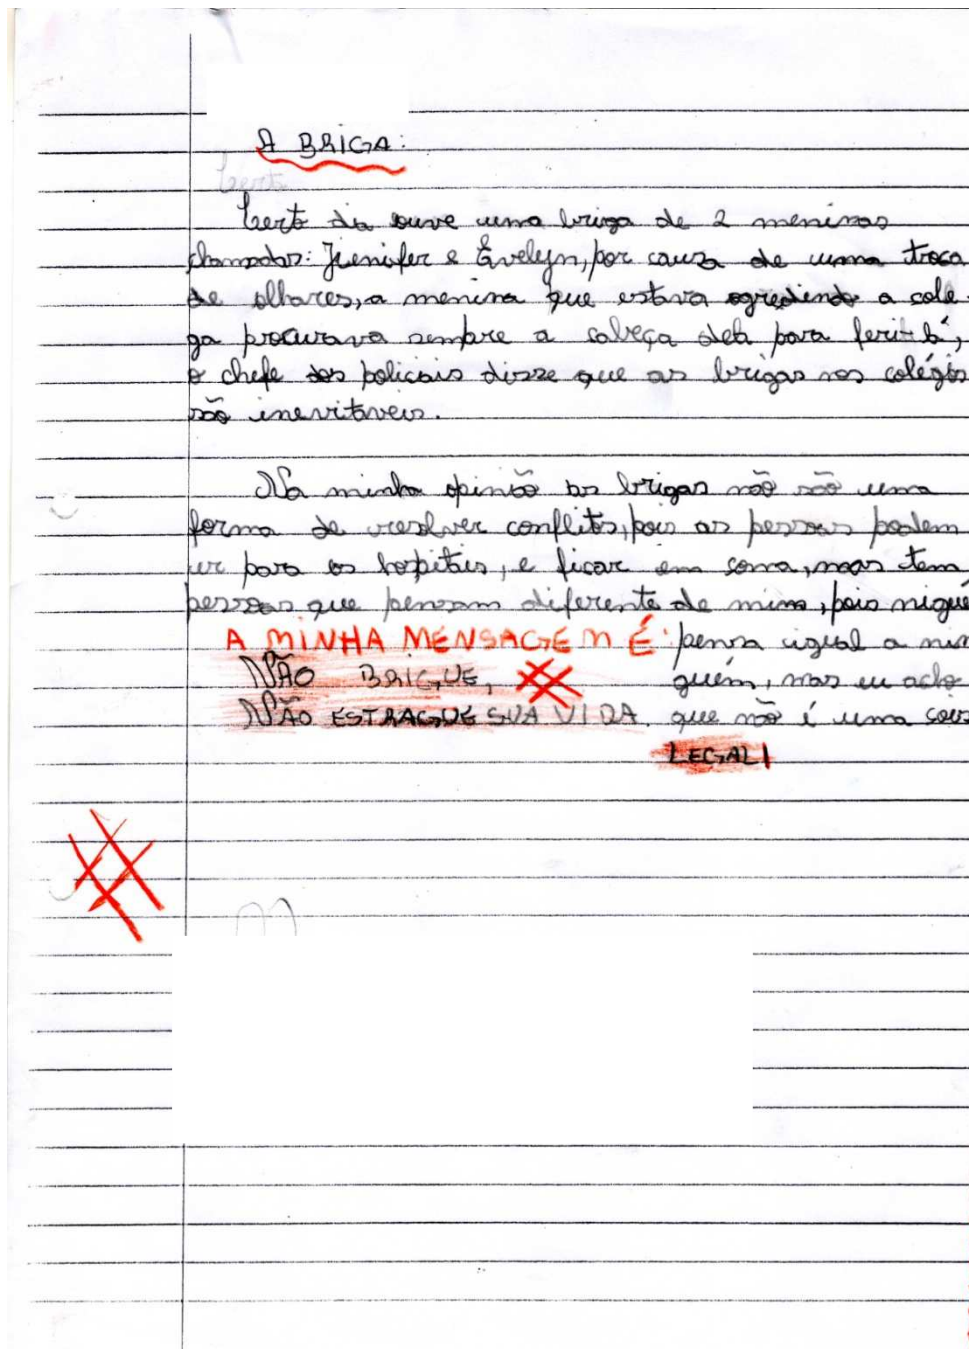 A BRIGA:
Certo
Certo dia ouve uma briga de 2 meninas
chamadas: Jenifer e Évelyn, por causa de uma troca
de olhares, a menina que estava agredindo a cole
ga procurava sempre a cabeça dela para feritlá,
o chefe dos policais disse que as brigas nos colégios
são inevitaveis.
Na minha opinião as brigas não são uma
forma de resolver conflitos, pois as pessoas podem
ir para os hospitais, e ficar em coma, mas tem
pessoas que pensam diferente de mim, pois nigué
A MINHA MENSAGEM É: pensa igual a nin
NÃO BRIGUE, guém, mas eu acho
NÃO ESTRAGUE SUA VIDA. que não é uma cois
LEGAL!